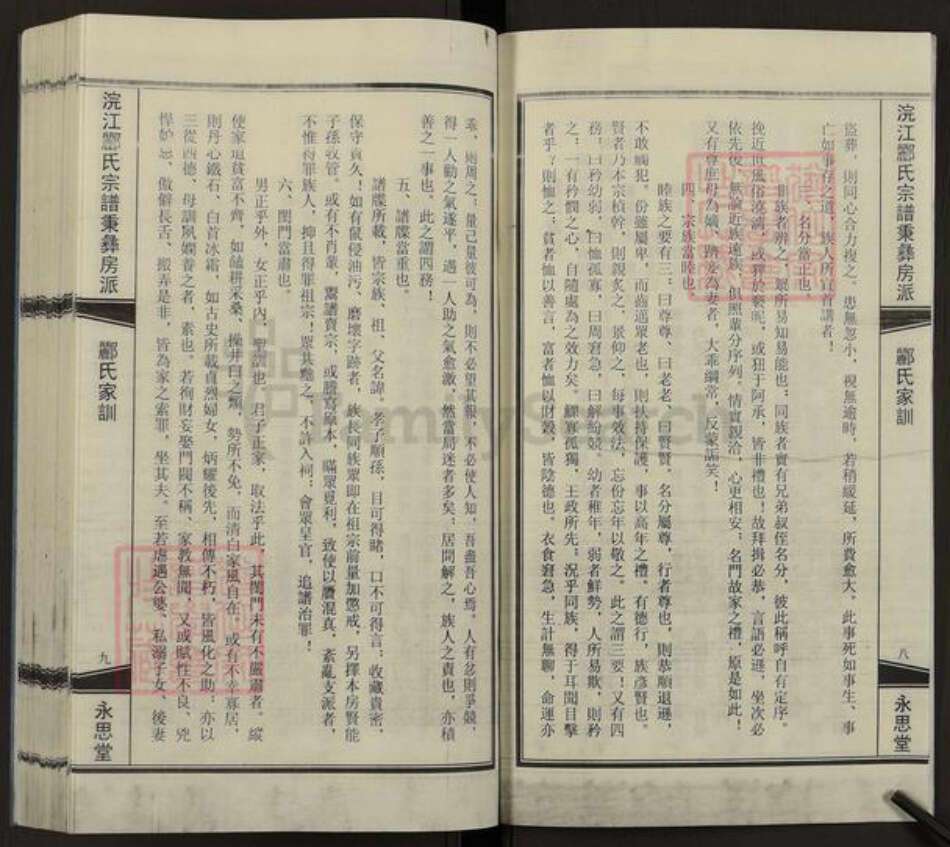 浣江酈氏宗譜秉彝房派
酈氏家訓
八
永思堂
盜葬，則同心合力複之。患無忽小，視無逾時，若稍緩延，所費愈大，此事死如事生、事
亡如事存之道，族人所宜首講者！
三、名分當正也，
非族者辨之，眾所易知易能也；同族者實有兄弟叔侄名分，彼此稱呼自有定序。
挽近世風俗澆漓，或狎於褻昵，或狃于阿承，皆非禮也！故拜揖必恭，言語必遜，坐次必
依先後，無論近族遠族，俱照輩分序列。情實親洽，心更相安；名門故家之禮，原是如此！
又有尊庶母為嫡，躋妾為妻者，大乖綱常，反蒙詬笑！
四、宗族當睦也，
睦族之要有三：曰尊尊、曰老老、曰賢賢。名分屬尊，行者尊也，則恭順退遜，
不敢觸犯。份雖屬卑，而齒邁眾老也，則扶持保護，事以高年之禮。有德行，族彥賢也。
賢者乃本宗楨幹，則親炙之，景仰之，每事效法，忘份忘年以敬之。此之謂三要！又有四
務：曰矜幼弱，曰恤孤寡，曰周窘急，曰解紛競。幼者稚年，弱者鮮勢，人所易欺，則矜
之；一有矜憫之心，自隨處為之效力矣。鰥寡孤獨，王政所先；況乎同族，得于耳聞目擊
者乎？則恤之；貧者恤以善言，富者恤以財穀，皆陰德也。衣食窘急，生計無聊，命運亦
乖，則周之；量己量彼可為，則不必望其報，不必使人知，吾盡吾心焉。人有忿則爭競，
得一人勸之氣遂平，遇一人助之氣愈激，然當局迷者多矣；居間解之，族人之責也，亦積
善之一事也。此之謂四務！
五、譜牒當重也。
譜牒所載，皆宗族、祖、父名諱。孝子順孫，目可得睹，口不可得言；收藏貴密，
保守貴久！如有鼠侵油污、磨壞字跡者，族長同族眾即在祖宗前量加懲戒，另擇本房賢能
子孫收管。或有不肖輩，鬻譜賣宗，或謄寫原本，瞞眾覓利，致使以贗混真，紊亂支派者，
不惟得罪族人，抑且得罪祖宗！眾共黜之，不許入祠；會眾呈官，追譜治罪！
六、閨門當肅也。
男正乎外，女正乎內，聖訓也。君子正家，取法乎此，其閨門未有不嚴肅者。縱
使家道貧富不齊，如饁耕采桑，操井臼之類，勢所不免，而清白家風自在。或有不幸寡居，
則丹心鐵石，白首冰霜，如古史所載貞烈婦女，炳耀後先，相傳不朽，皆風化之助；亦以
三從四德、母訓夙嫻養之者，素也。若徇財妄娶門閥不稱、家教無聞，又或賦性不良、兇
悍妒忌、傲僻長舌、搬弄是非，皆為家之索罪，坐其夫。至若虐遇公婆、私溺子女、後妻
浣江酈氏宗譜秉彝房派
酈氏家訓
九
永思堂